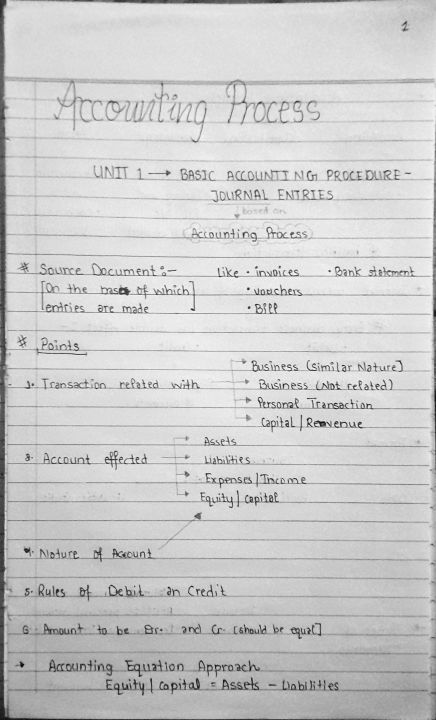 1
Accounting Process
UNIT 1 → BASIC ACCOUNTING PROCEDURE -
JOURNAL ENTRIES
↓ based on
Accounting Process
# Source Document :- Like • invoices • Bank statement
[On the basis of which] • vouchers
[entries are made] • Bill
# Points
→ Business (Similar Nature]
1. Transaction related with → Business (Not related)
→ Personal Transaction
→ Capital | Revenue
→ Assets
3. Account effected → Liabilities
→ Expenses | Income
→ Equity | Capital
4. Nature of Account
5. Rules of Debit an Credit
6. Amount to be Dr. and Cr. [should be equal]
→ Accounting Equation Approach
Equity | Capital = Assets - Liabilities